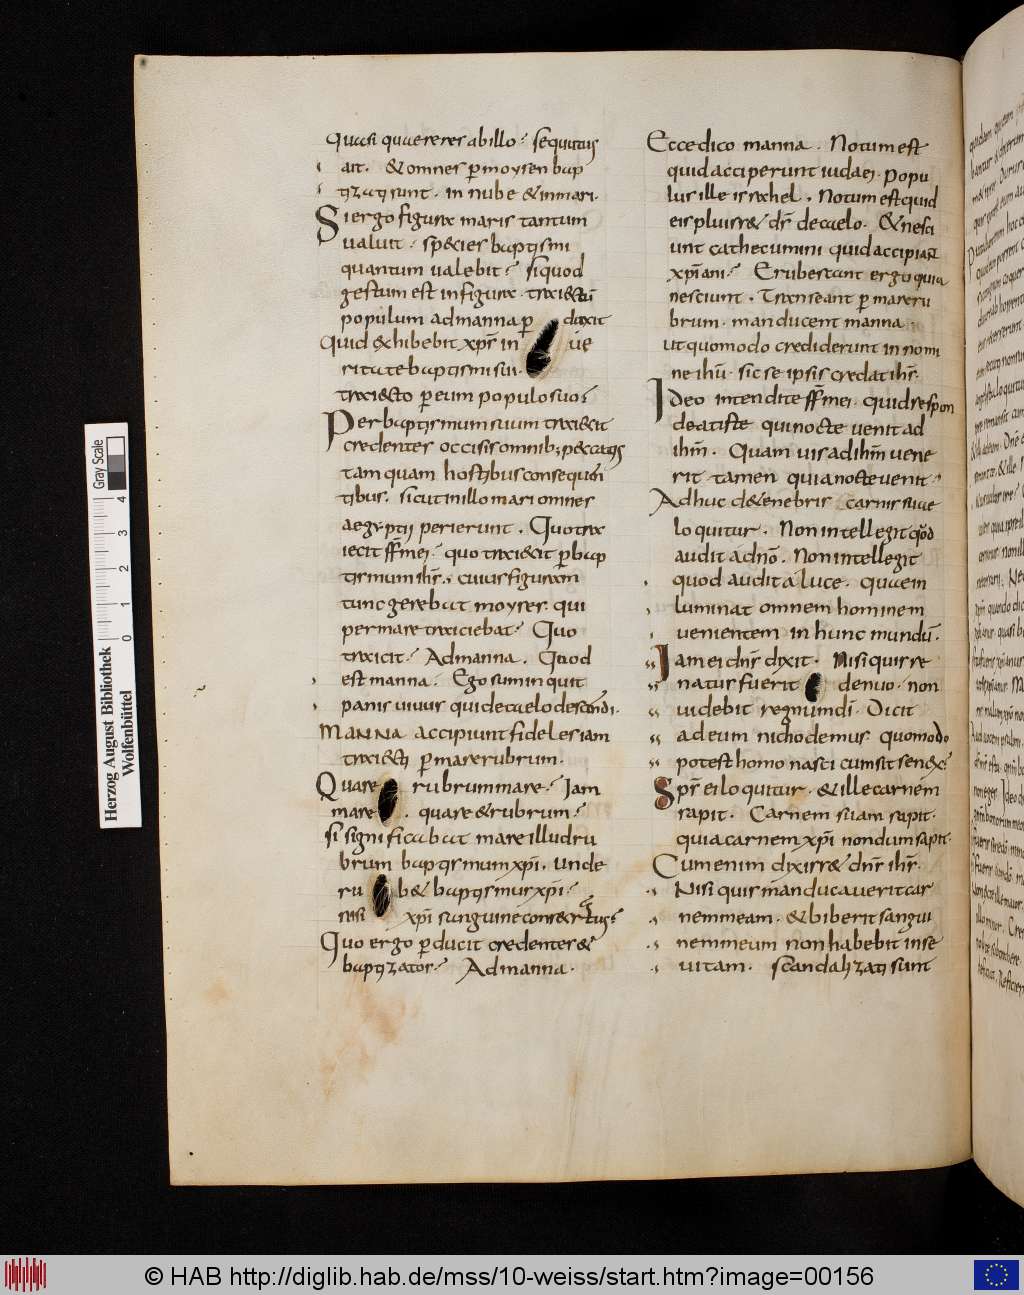 quasi quaereres ab illo? sequitus
ait. & omnes p̄ moysen bap
tizati sunt. in nube & in mari.
Si ergo figura maris tantum
ualuit? sp&cies baptismi
quantum ualebit? si quod
gestum est in figura. traiectū
populum ad manna p̄ duxit
Quid exhibebit xp̄s in ue
ritate baptismi sui.
traiecto per eum populo suo?
Per baptismum suum traiecit
credentes occisis omnib; peccatis
tam quam hostibus consequen
tibus. sicut in illo mari omnes
aegyptii perierunt. Quo tra
iecit ff̄ mei? quo traiecit p̄ bap
tismum ih̄s. cuius figuram
tunc gerebat moyses. qui
per mare traiciebat? Quo
traicit? Ad manna. Quod
est manna. Ego sum inquit
panis uiuus qui de caelo descendi.
MANNA accipiunt fideles iam
traiecti p̄ mare rubrum.
Quare rubrum mare? Iam
mare. quare & rubrum?
significabat mare illud ru
brum baptismum xp̄i. unde
rub& baptismus xp̄i?
nisi xp̄i sanguine consecratus?
Quo ergo p̄ducit credentes &
baptizatos? Ad manna.
Ecce dico manna. Notum est
quid acciperunt iudaei. popu
lus ille israhel. Notum est quid
eis pluiss& d̄s de caelo. & nesci
unt cathecumini quid accipiant
xp̄iani? Erubescant ergo quia
nesciunt. Transeant p̄ mare ru
brum. manducent manna
ut quomodo crediderunt in nomi
ne ih̄u. sic se ipsis credat ih̄s.
Ideo intendite ff̄ mei. quid respon
deat iste qui nocte uenit ad
ih̄m. Quam uis ad ih̄m uene
rit tamen quia nocte uenit.
Adhuc de tenebris carnis suae
loquitur. Non intellegit quod
audit a dn̄o. Non intellegit
quod audit a luce. quae in
luminat omnem hominem
uenientem in hunc mundū.
Iam ei dn̄s dixit. Nisi quis re
natus fuerit denuo. non
uidebit regnum dī. Dicit
ad eum nichodemus quomodo
potest homo nasci cum sit senex?
Sp̄s ei loquitur. & ille carnem
sapit. Carnem suam sapit.
quia carnem xp̄i nondum sapit.
Cum enim dixiss& dn̄s ih̄s.
Nisi quis manducauerit car
nem meam. & biberit sangui
nem meum non habebit in se
uitam. scandalizati sunt
Herzog August Bibliothek
Wolfenbüttel
Gray Scale
0 1 2 3 4
© HAB http://diglib.hab.de/mss/10-weiss/start.htm?image=00156